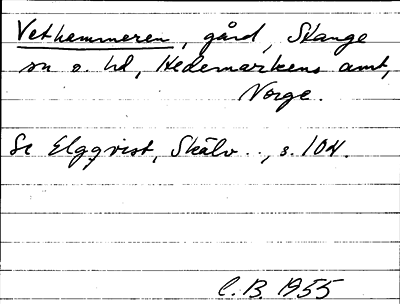 Vethammeren, gård, Stange
sn o. hd, Hedemarkens amt,
Norge.
Se Elgqvist, Skälv.., s. 104.
C.B. 1955